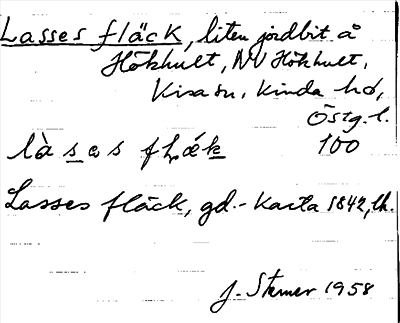 Lasses fläck, liten jordbit å
Hökhult, NV Hökhult,
Kisa sn, Kinda hd,
Östg. l.
làsas flǽk 100
Lasses fläck, gd. - Karta 1842, lh.
J. Sterner 1958